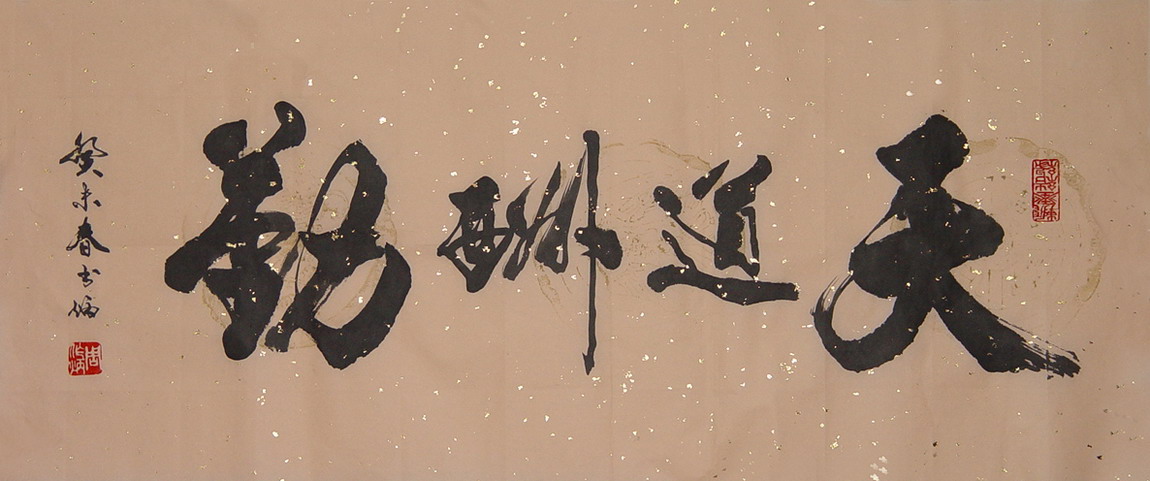 天道酬勤
癸未春书炳